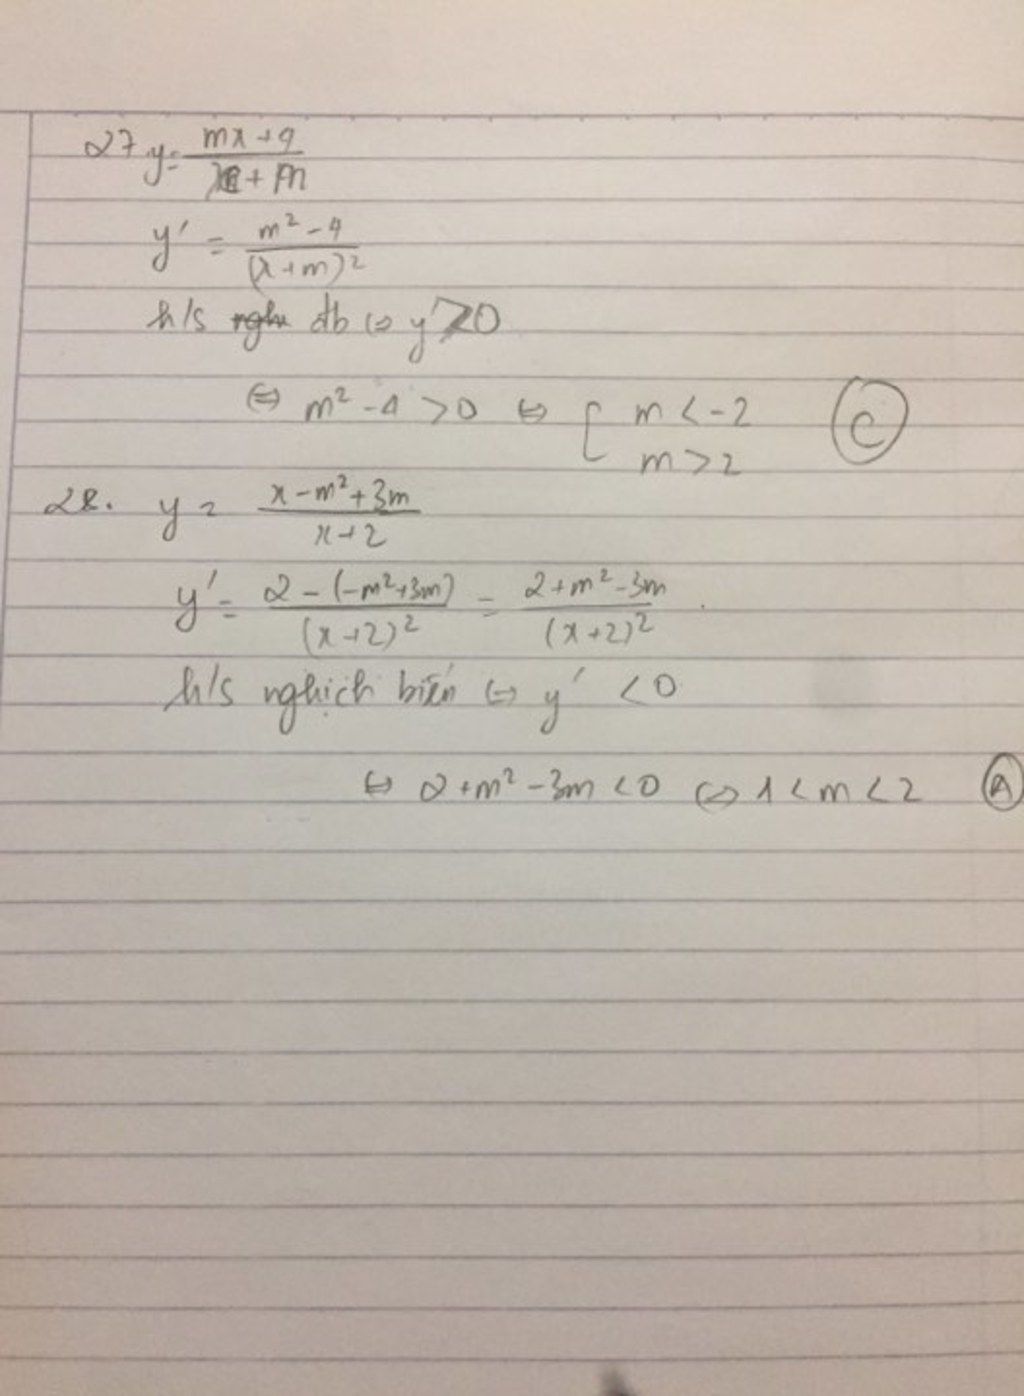 27. y = (mx+4)/(x+m)
y' = (m² - 4)/(x+m)²
h/s đb ⇔ y' > 0
⇔ m² - 4 > 0 ⇔ [ m < -2 Ⓒ
m > 2
28. y = (x - m² + 3m)/(x+2)
y' = (2 - (-m²+3m))/(x+2)² = (2+m² - 3m)/(x+2)².
h/s nghịch biến ⇔ y' < 0
⇔ 2 + m² - 3m < 0 ⇔ 1 < m < 2 Ⓐ